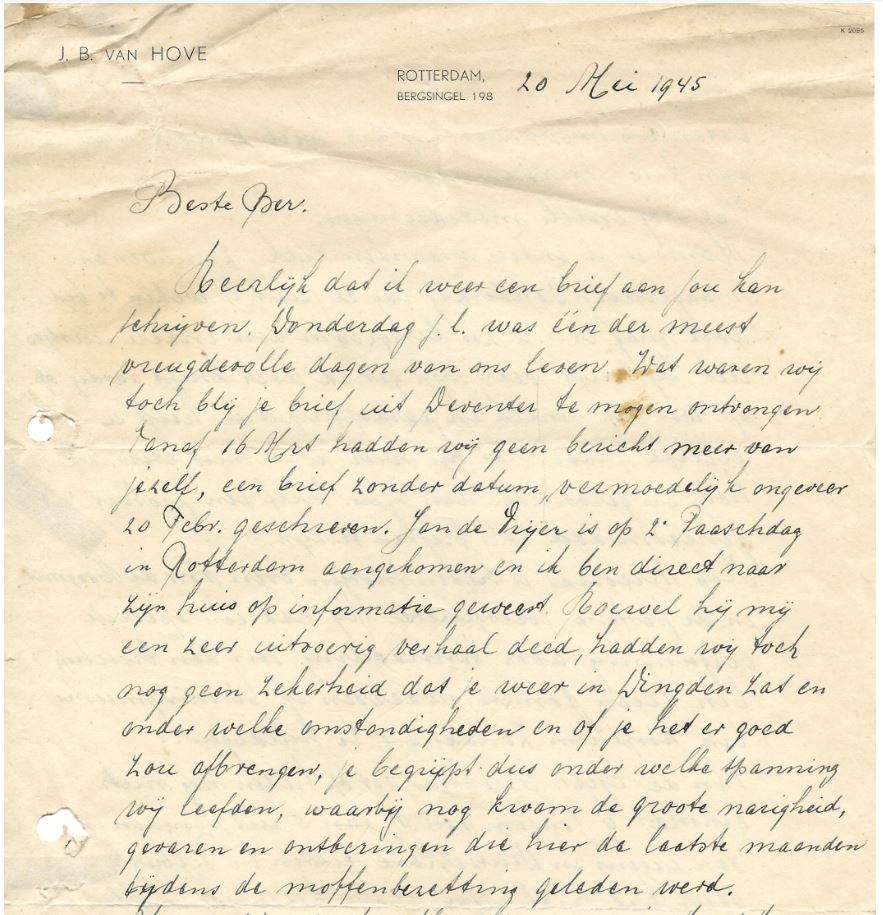 K 2095
J. B. VAN HOVE
ROTTERDAM,
BERGSINGEL 198
20 Mei 1945
Beste Ber.
Heerlijk dat ik weer een brief aan jou kan
schrijven. Donderdag j.l. was één der meest
vreugdevolle dagen van ons leven. Wat waren wij
toch blij je brief uit Deventer te mogen ontvangen
Vanaf 16 Mrt hadden wij geen bericht meer van
jezelf, een brief zonder datum, vermoedelijk ongeveer
20 Febr. geschreven. Jan de Vrijer is op 2e Paaschdag
in Rotterdam aangekomen en ik ben direct naar
zijn huis op informatie geweest. Hoewel hij mij
een zeer uitvoerig verhaal deed, hadden wij toch
nog geen zekerheid dat je weer in Dingden zat en
onder welke omstandigheden en of je het er goed
zou afbrengen, je begrijpt dus onder welke spanning
wij leefden, waarbij nog kwam de groote narigheid,
gevaren en ontberingen die hier de laatste maanden
tijdens de moffenbezetting geleden werd.